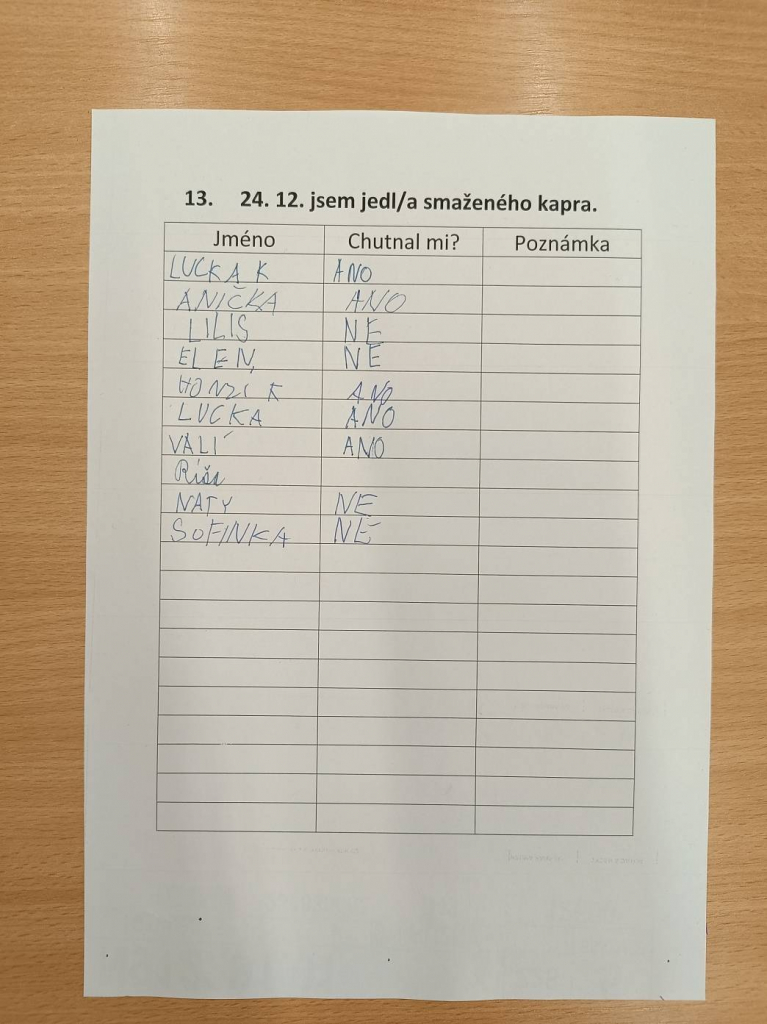 13. 24. 12. jsem jedl/a smaženého kapra.
Jméno Chutnal mi? Poznámka
LUCKA K ANO
ANIČKA ANO
LILIS NE
ELEN NE
HONZÍK ANO
LUCKA ANO
VALÍ ANO
Ríša
NATY NE
SOFINKA NE